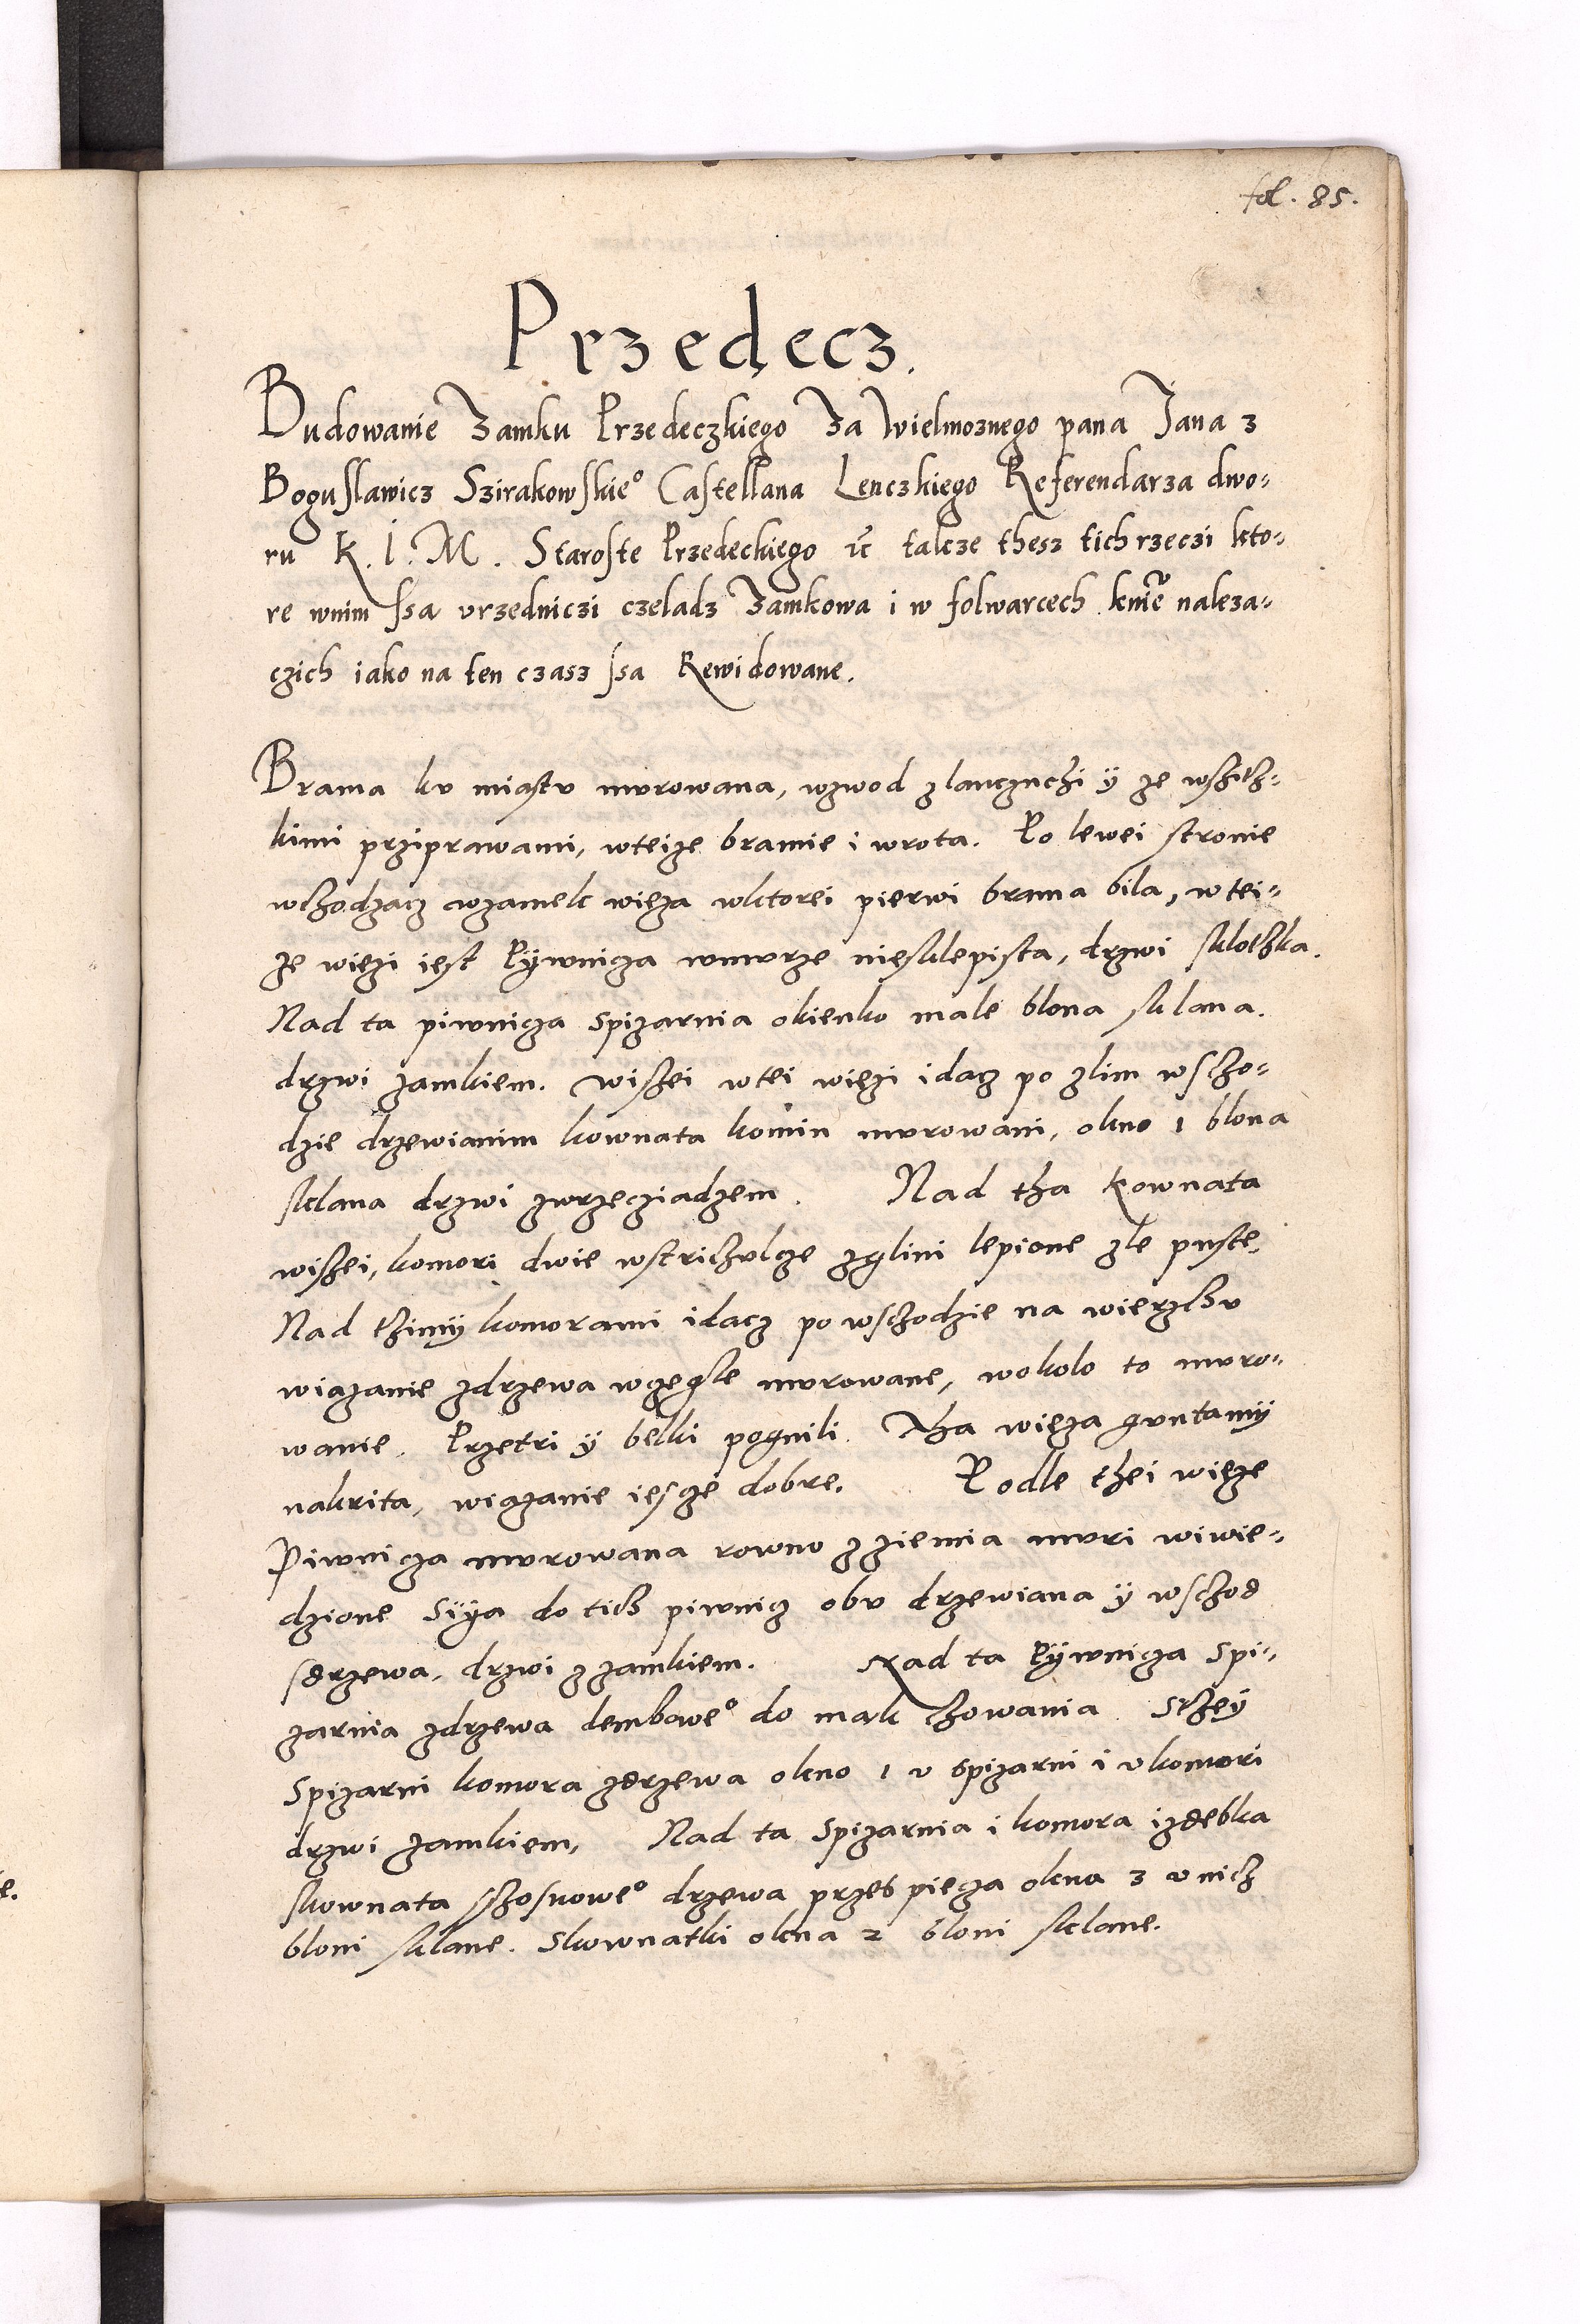 fol. 85.
Przedecz.
Budowanie Zamku Przedeczkiego Za Wielmoznego pana Jana z
Boguslawicz Szirakowskie° Castellana Lenczkiego Referendarza dwo-
ru K. I. M. Staroste Przedeckiego takze thesz tich rzeczi kto-
re wnim ssa vrzedniczi czeladz Zamkowa i w folwarcech kniĕ naleza-
czich iako na ten czasz ssa Rewidowane.
Brama kv miastv mvrowana, wzwod zlanczuchi ÿ ze wszitz-
kimi prziprawami, wteize bramie i wrota. Po lewei stronie
wchodzacz wzamek wieza wktorei pierwi brama bila, w tei-
ze wiezi iest Pÿwnicza wmvrze niesklepista, drzwi sklotzka.
Nad ta piwnicza spizarnia okienko male blona sklana.
drzwi zamkiem. wiszei w tei wiezi idacz po zlim wscho-
dzie drzewianim kownata komin mvrowani, okno 1 blona
sklana drzwi zwrzecziadzem. Nad tha kownata
wiszei, komori dwie wstrichvlcze zglini lepione zle puste.
Nad thimÿ komorami idacz po wschodzie na wierzchv
wiazanie zdrzewa wzegle mvrowane, wokolo to mvro-
wanie. Przetri ÿ belki pognili. Tha wieza gvntamÿ
nakrita, wiązanie iescze dobre. Podle thei wieze
Piwnicza mvrowana rowno z ziemia mvri wiwie-
dzione Siÿa do tich piwnicz obv drzewiana ÿ wschod
sdrzewa, drzwi z zamkiem. Nad ta Pÿwnicza Spi-
zarnia zdrzewa dembowe° do mąk chowania. Stheÿ
Spizarni komora zdrzewa okno 1 v spizarni i v komori
drzwi zamkiem, Nad ta Spizarnia i komora izdebka
skownata schosnowe° drzewa przes piecza okna 3 v nich
bloni sklane. Skownatki okna 2 bloni sklane.